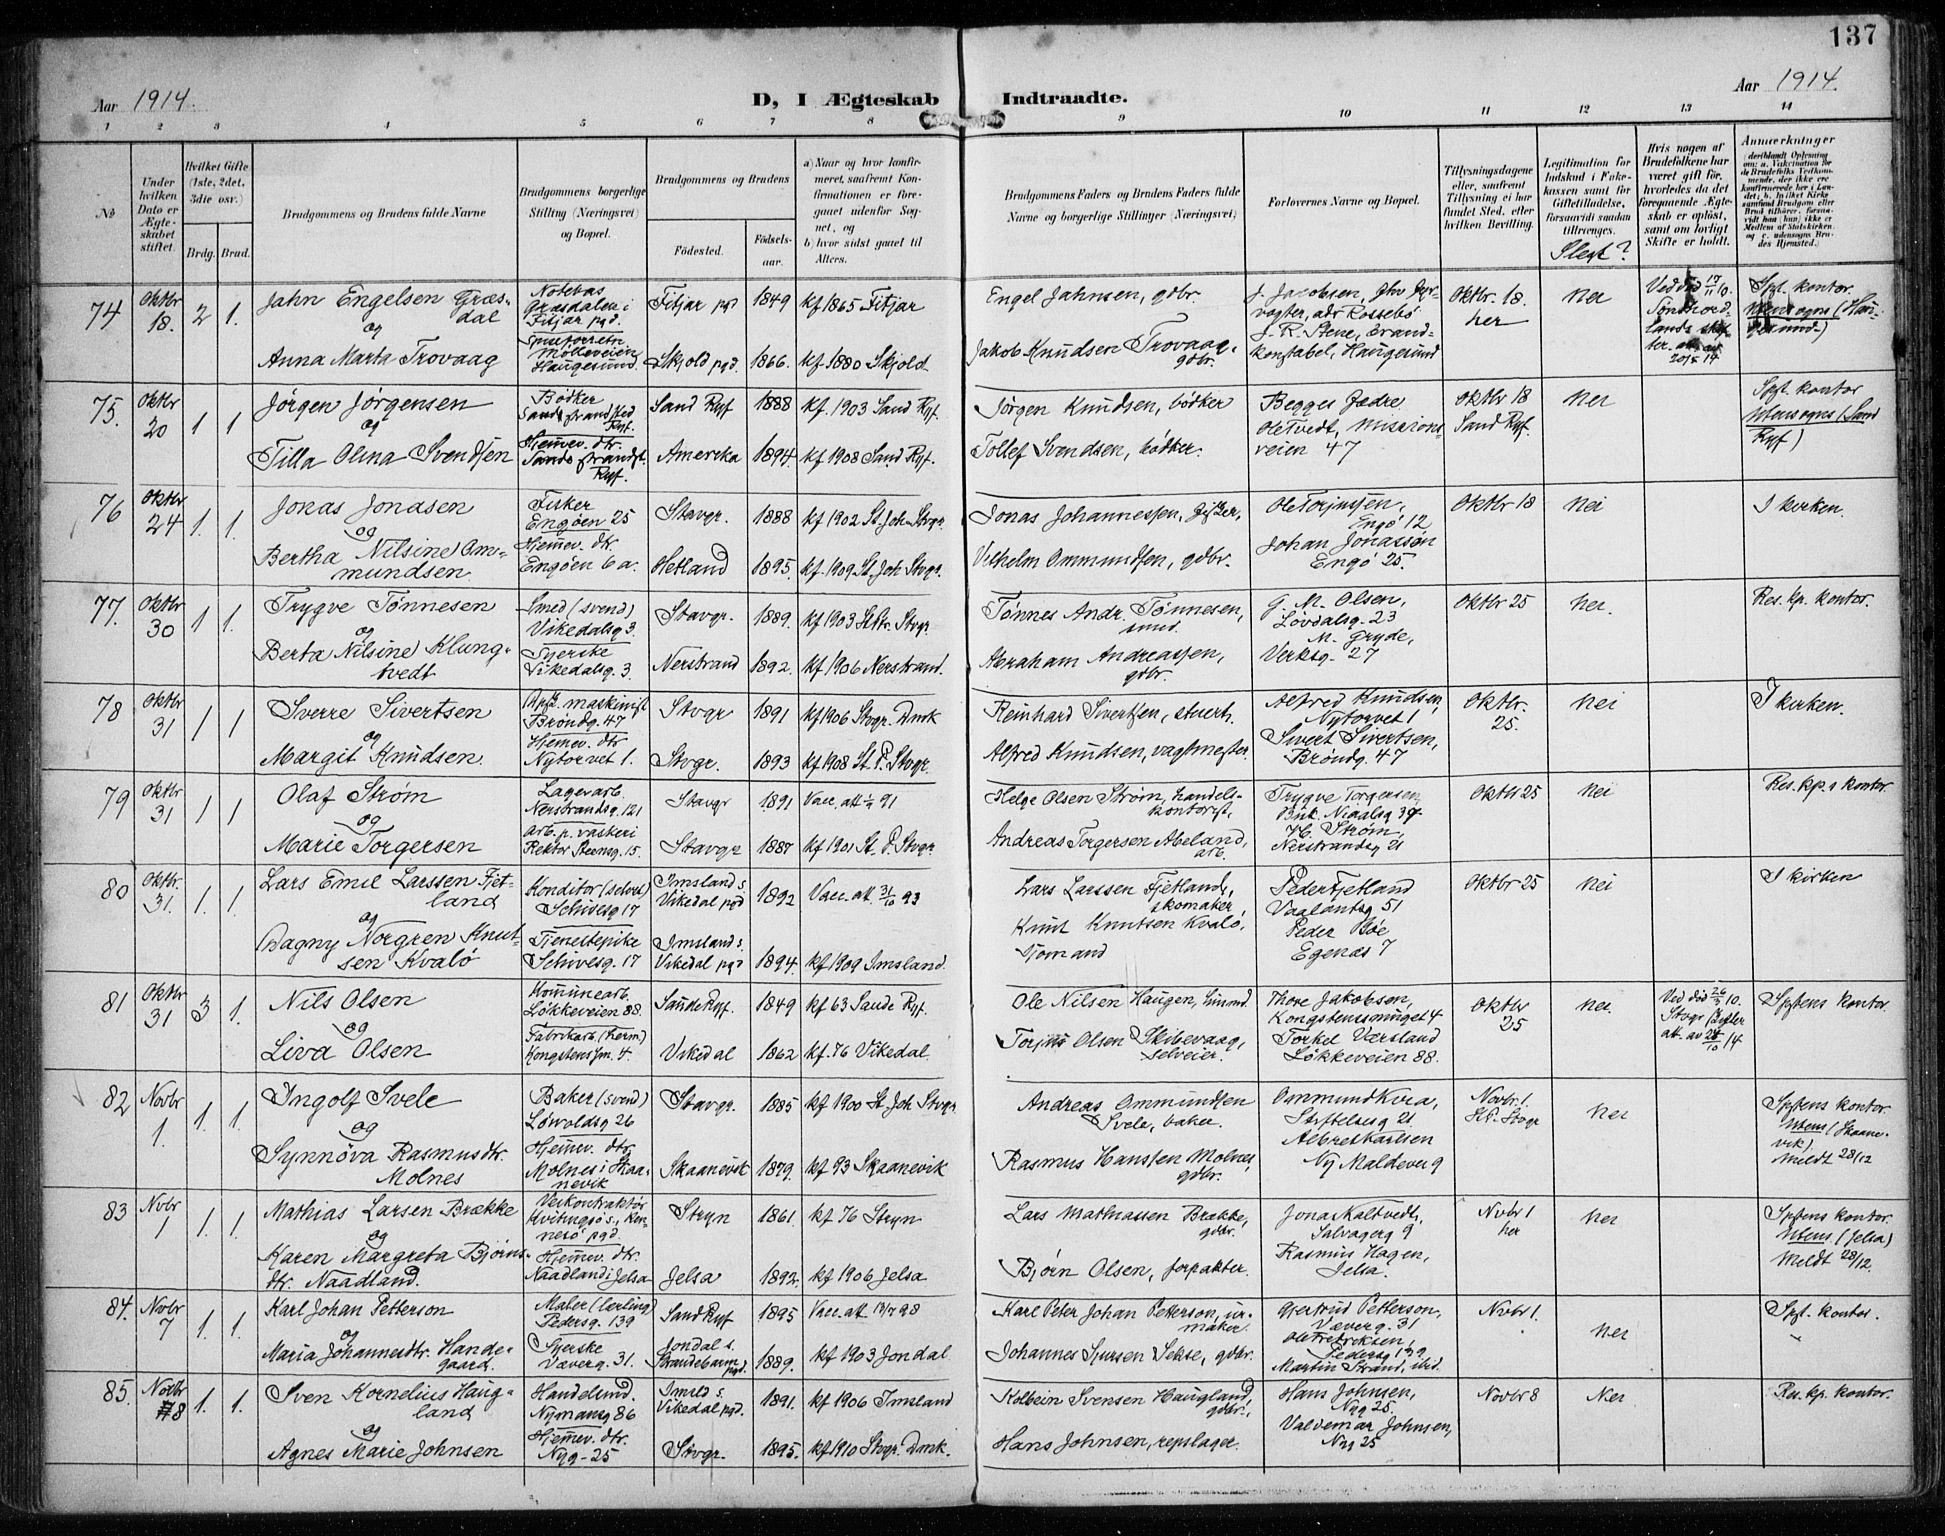 137
Aar 1914.
D, I Ægteskab Indtraadte.
Aar 1914.
1 2 3 4 5 6 7 8 9 10 11 12 13 14
№
Under hvilken Dato er Ægteskabet stiftet.
Hvilket Gifte (1ste, 2det, 3die osv.)
Brdg. Brud.
Brudgommens og Brudens fulde Navne
Brudgommens borgerlige Stilling (Næringsvei) og Bopæl.
Brudgommens og Brudens
Fødested.
Fødselsaar.
a) Naar og hvor konfirmeret, saafremt Konfirmationen er foregaaet udenfor Sognet, og
b) hvor sidst gaaet til Alters.
Brudgommens Faders og Brudens Faders fulde Navne og borgerlige Stillinger (Næringsvei)
Forlovernes Navne og Bopæl.
Tillysningsdagene eller, saafremt Tillysning ei har fundet Sted, efter hvilken Bevilling.
Legitimation for Indskud i Enkekassen samt for Giftetilladelse, forsaavidt saadan tiltrænges.
Slegt?
Hvis nogen af Brudefolkene har været gift før, hvorledes da det foregaaende Ægteskab er opløst, samt om lovligt Skifte er holdt.
Anmærkninger
74 Oktbr 18. 2 1.
Jahn Engelsen Græsdal
og
Anna Marta Trovaag
Notebas Græsdalen i Fitjar pgd.
Mølleveien Haugesund.
Fitjar pgd 1849 kf 1865 Fitjar
Skjold pgd. 1866. kf. 1880 Skjold
Engel Jahnsen, gdbr.
Jakob Knudsen Trovaag, gdbr.
J. Jacobsen, adr Rossebø
J. R. Stene, brandkonstabel, Haugesund
Oktbr. 18. her
nei
Spt. kontor.
75. Oktbr 20 1 1
Jørgen Jørgensen
og
Tilla Olina Svendsen
Bødker Sands strandsted Ryf.
Hjemmev. dtr. Sands strandst. Ryf.
Sand Ryf 1888 kf. 1903 Sand Ryf.
Amerika 1894. kf 1908 Sand Ryf.
Jørgen Knudsen, bødker
Tollef Svendsen, bødker.
Begges Fædre
Ole Tvedt, Missionsveien 47
Oktbr 18 Sand Ryf.
nei
Spt. kontor
Utensogns (Sand Ryf)
76 Oktbr 24 1. 1.
Jonas Jonasen
og
Bertha Nilsine Ommundsen
Fisker Engøen 25
Hjemmev. dtr. Engøen 6 a.
Stavgr. 1888 kf 1902 St. Joh. Stvgr.
Hetland 1895. kf. 1909 St. Joh Stvgr.
Jonas Johannessen, fisker,
Vilhelm Ommundsen, gdbr.
Ole Torjussen, Engø 12
Johan Jonassøn Engø 25.
Oktbr 18
nei
I kirken.
77. Oktbr 30 1 1.
Trygve Tønnesen
og
Berta Nilsine Klungtvedt
Smed (svend) Vikedalsg 3.
Syerske Vikedalsg. 3
Stavgr. 1889. kf 1903 St. Ptr. Stvgr.
Nerstrand 1892. kf 1906 Nerstrand.
Tønnes Andr. Tønnesen, smed.
Abraham Andreassen, gdbr.
G. M. Olsen, Løvdalsg. 23
M. Gryde, Verksg. 27
Oktbr 25
nei.
Res. kp. kontor.
78 Oktbr 31 1 1
Sverre Sivertsen
og
Margit Knudsen
maskinist Brøndg. 47
Hjemmev. dtr Nytorvet 1.
Stvgr 1891 kf 1906 Stvgr. Dmk
Stvgr. 1893 kf 1908 St. P. Stvgr.
Reinhard Sivertsen, stuert.
Alfred Knudsen, vagtmester.
Alfred Knudsen, Nytorvet 1
Sivert Sivertsen, Brøndg. 47
Oktbr. 25.
nei
I kirken.
79 Oktbr 31 1 1
Olaf Strøm
og
Marie Torgersen
Lagerarb. Nerstrandsg. 121
Arb. p. vaskeri Rektor Steensg. 15.
Stavgr 1891 Vacc. att. 91
Stavgr 1887 kf 1901 St. P. Stvgr.
Helge Olsen Strøm, handelskontorist,
Andreas Torgersen Abeland, arb.
Trygve Torgersen, Bnk. Njaalsg 34
H. Strøm, Nerstrandsg 21
Oktbr 25
nei
Res. kp.s kontor
80 Oktbr. 31. 1. 1
Lars Emil Larssen Fjetland
og
Dagny Norgren Knutsen Kvalø
Konditor (selvst) Schivesg 17
Tjenestepike Schivesg. 17
Imsland s. Vikedal pgd 1892 Vacc. att. 31/10 93
Imsland s. Vikedal pgd 1894. kf 1909 Imsland.
Lars Larssen Fjetland, skomaker
Knut Knutsen Kvalø, sjømand
Peder Fjetland Vaalandsg 51
Peder Bøe Egenæs 7
Oktbr 25
nei
I kirken
81 Oktbr 31 3 1.
Nils Olsen
og
Liva Olsen
Komunearb. Løkkeveien 88.
Fabrikarb. (herm.) Kongstenssm. 4.
Saude Ryf. 1849 kf 63 Saude Ryf.
Vikedal 1862 kf. 76 Vikedal.
Ole Nilsen Haugen, husmd.
Torjus Olsen Skibevaag, selveier.
Thore Jakobson, Kongstenssmuget 4
Torkel Værsland Løkkeveien 88.
Oktbr 25
nei.
Spstens kontor
82 Novbr 1. 1. 1.
Ingolf Svele
og
Synnøva Rasmusdtr. Molnes
Baker (svend) Løwoldsg 26
Hjemmev. dtr. Molnes i Skaanevik
Stavgr. 1885 kf 1900 St. Joh Stvgr
Skaanevik 1879. kf 93 Skaanevik
Andreas Ommundsen Svele, baker.
Rasmus Hanssen Molnes, gdbr.
Ommund Kvia, Stiftelsesg 21
Albret Karlsen Ny Maldevei 9
Novbr. 1.
nei
Spstens kontor.
Utens (Skaanevik)
Meldt 28/12
83 Novbr 1 1. 1.
Mathias Larsen Brække
og
Karen Margreta Bjørnsdtr. Naadland.
Veikontraktør Kvitingsø s., Rennesø pgd.
Hjemmev. dtr. Naadland i Jelsa
Stryn 1861. kf 76 Stryn
Jelsa 1892. kf 1906 Jelsa
Lars Mathiassen Brække, gdbr.
Bjørn Olsen, forpakter.
Jona Kaltvedt, Salvagerg 9
Rasmus Hagen, Jelsa.
Novbr 1 her
nei
Spstens kontor.
Utens. (Jelsa)
Meldt 28/12.
84. Novbr 7 1. 1.
Karl Johan Petterson
og
Maria Johannesdtr. Handegaard.
Maler (lærling) Pedersg. 139
Syerske Væverg. 31.
Sand Ryf 1895 Vacc. att 98
Jondal s. Strandebarm pgd. 1889. kf 1903 Jondal
Karl Peter Johan Petterson, urmaker.
Johannes Sjursen Sekse, gdbr.
Gjertrud Petterson, Væverg. 31
Ole Fredriksen, Pedersg 139
Martin Strand, ibid.
Novbr 1.
nei
Spt. kontor.
85. Novbr 8 1. 1.
Sven Kornelius Haugland
og
Agnes Marie Johnsen
Handelsmd. Nymansg 86
Hjemmev. dtr. Nyg. 25
Imsld s. Vikedal pgd. 1891. kf 1906 Imsland
Stvgr. 1895. kf 1910 Stvgr. Dmk.
Kolbein Svensen Haugland, gdbr.
Hans Johnsen, repslager.
Hans Johnsen, Nyg 25.
Valdemar Johnsen, Nyg 25
Novbr 8
Nei
Res. kp. kontor.